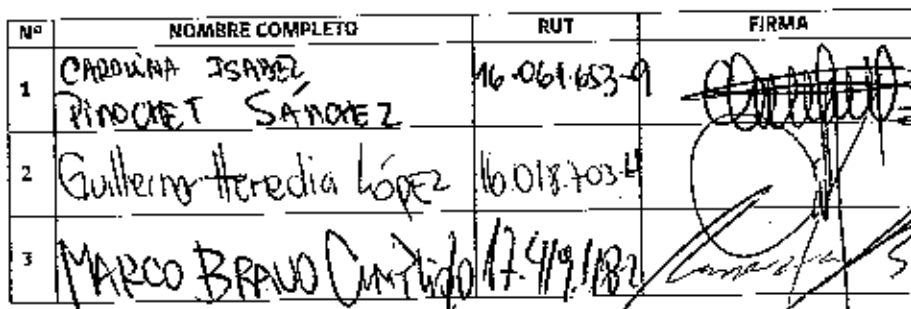 Nº NOMBRE COMPLETO RUT FIRMA
1 CAROLINA ISABEL
PINOCHET SÁNCHEZ 16.061.653-9
2 Guillermo Heredia López 16.018.703-4
3 MARCO BRAVO